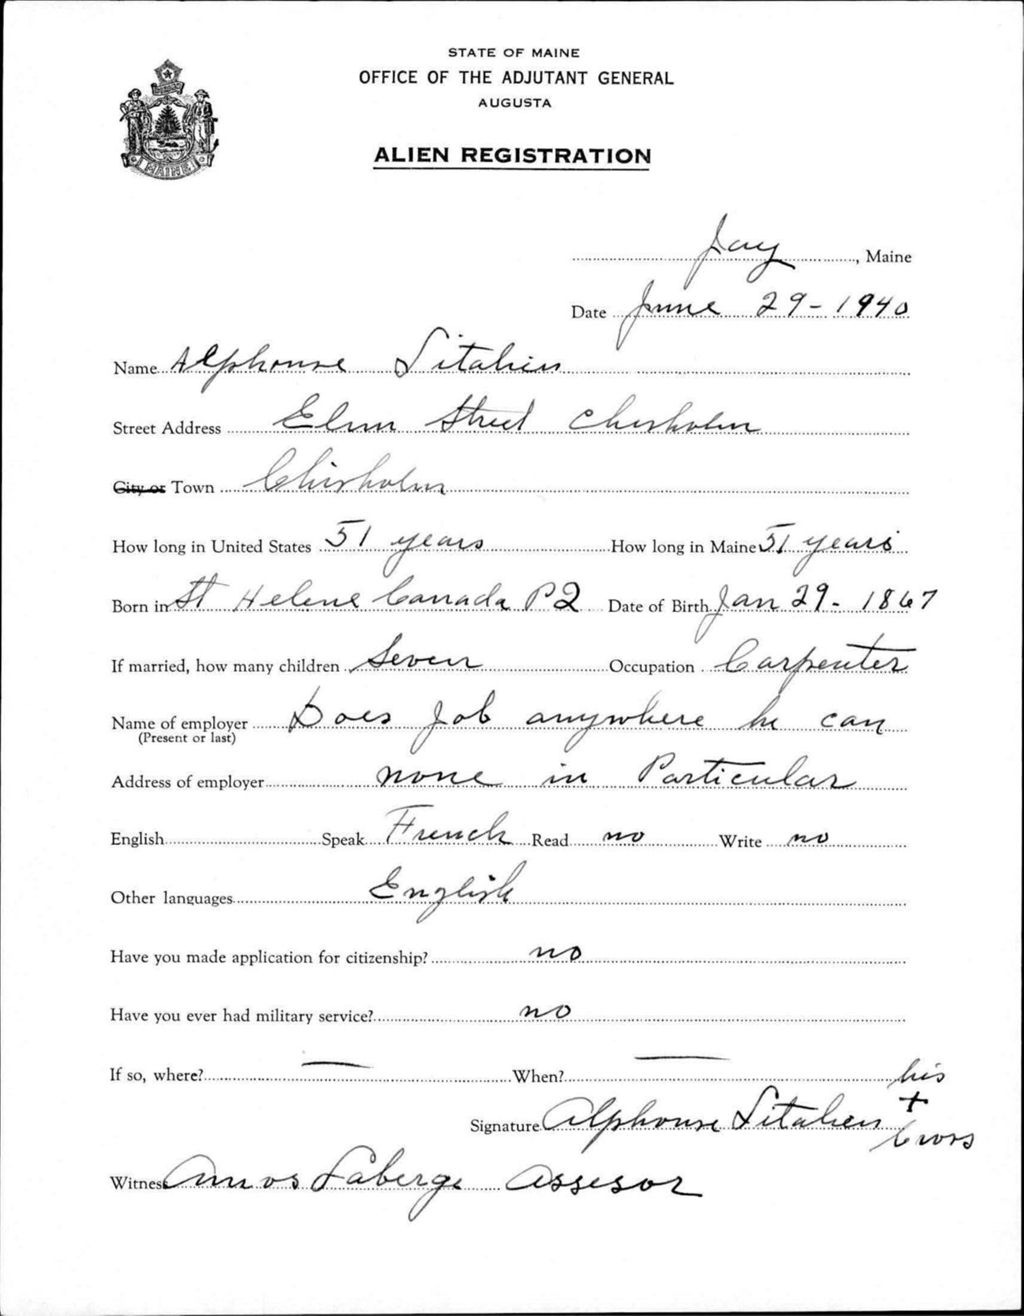 STATE OF MAINE
OFFICE OF THE ADJUTANT GENERAL
AUGUSTA
ALIEN REGISTRATION
MAINE
Jay, Maine
Date June 29-1940
Name Alphonse Litalien
Street Address Elm Street Chisholm
City or Town Chisholm
How long in United States 51 years How long in Maine 51 years
Born in St Helene Canada P2 Date of Birth Jan 29- 1867
If married, how many children Seven Occupation Carpenter
Name of employer Does Job anywhere he can
(Present or last)
Address of employer none in Particular
English Speak French Read no Write no
Other languages English
Have you made application for citizenship? no
Have you ever had military service? no
If so, where? — When? —
his
Signature Alphonse Litalien +
Cross
Witness Amos Laberge Assesor